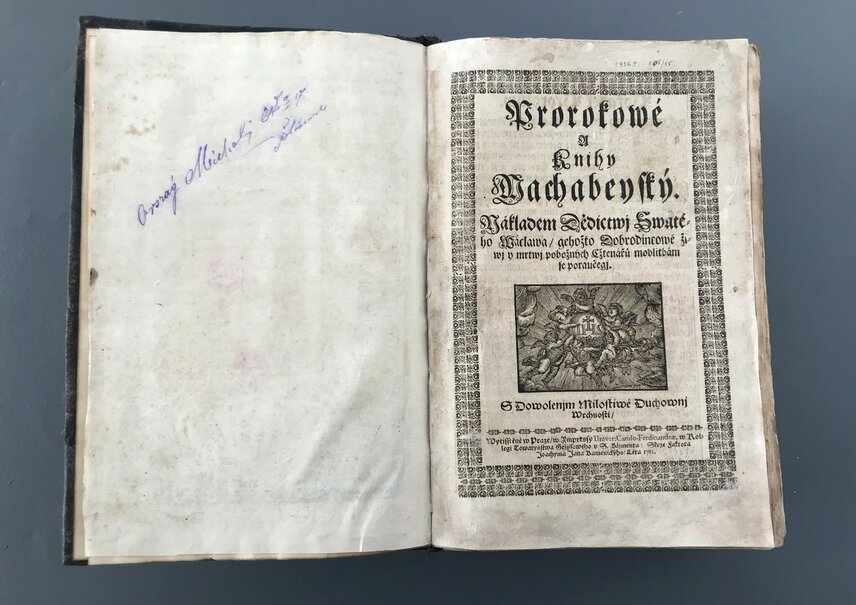 Michalj
19369 105/55
Prorokowé
A
Knihy
Machabeyský.
Nákladem Dědictwj Swaté-
ho Wáclawa/ gehožto Dobrodincowé ži-
wj y mrtwj pobožných Cžtenářů modlitbám
se poraučegj.
IHS
S Dowolenjm Milostiwé Duchownj
Wrchnosti/
Wytisstěné w Praze/ w Impressy Univer: Carolo-Ferdinandeæ, w Kol-
legi Towarysstwa Gežissowého v S. Klimenta: Skrze Faktora
Joachyma Jana Kamenického/ Léta